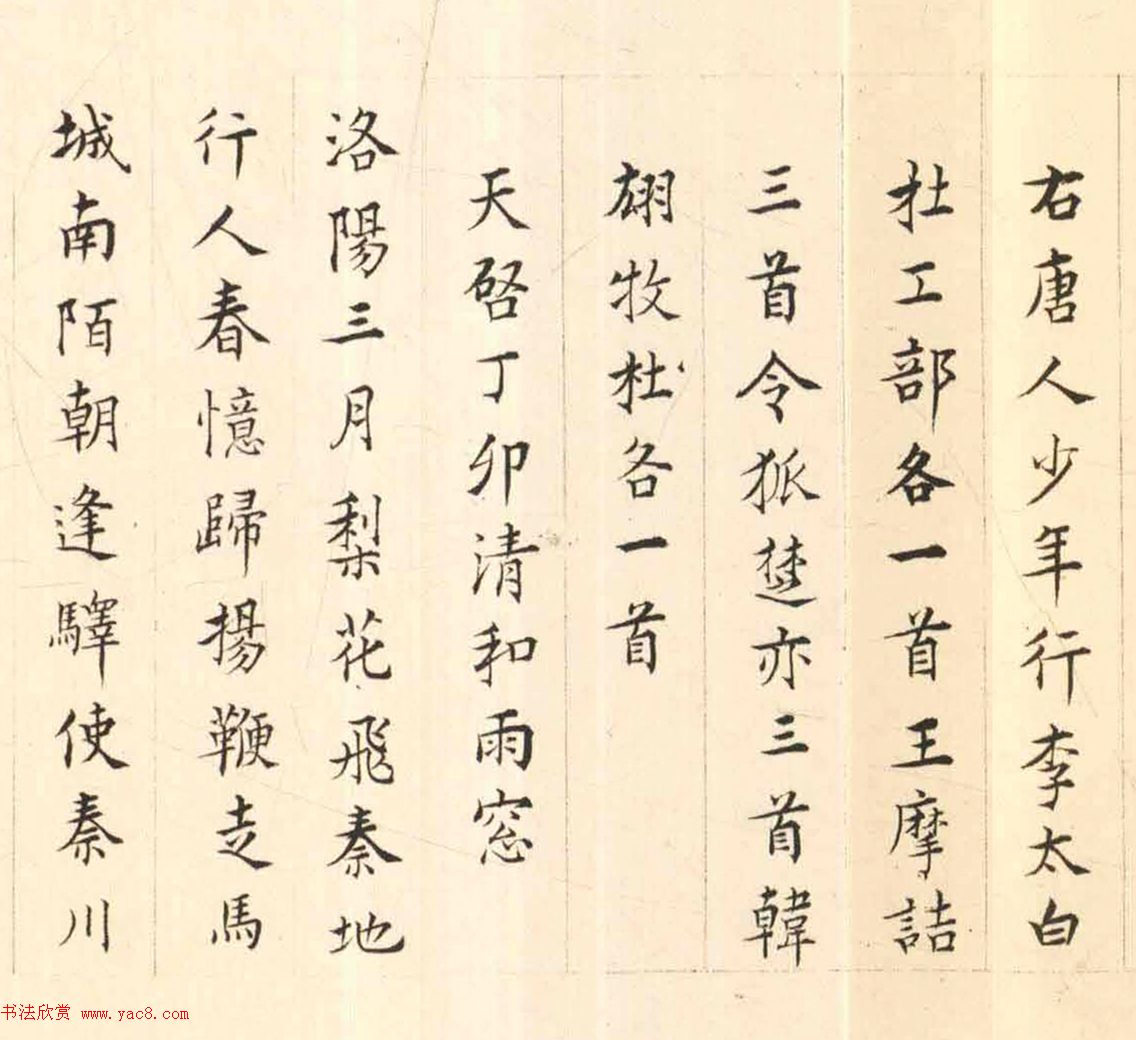 右唐人少年行李太白
杜工部各一首王摩詰
三首令狐楚亦三首韓
翃牧杜各一首
天啓丁卯清和雨窓
洛陽三月梨花飛秦地
行人春憶歸揚鞭走馬
城南陌朝逢驛使秦川
书法欣赏 www.yac8.com